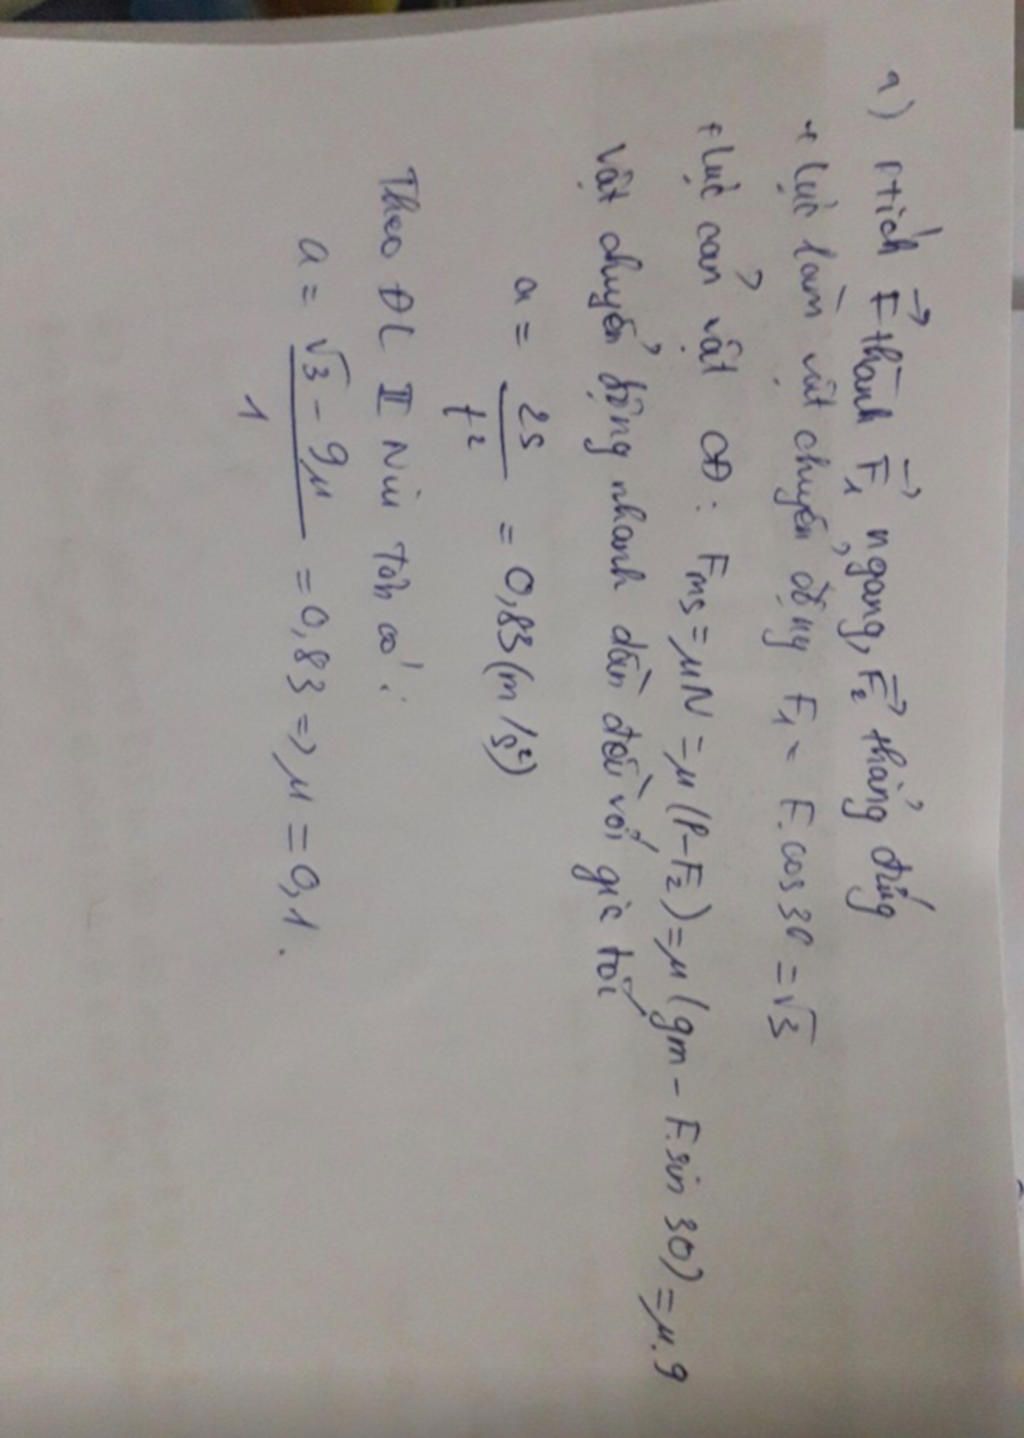 a) Ptích F→ thành F→₁ ngang, F→₂ thẳng đứng
+ Lực làm vật chuyển động F₁ = F.cos 30 = √3
+ Lực cản vật CĐ: Fms = μN = μ(P-F₂) = μ(gm - F.sin 30) = μ.9
Vật chuyển động nhanh dần đều với gia tốc
a = 2s/t² = 0,83 (m/s²)
Theo ĐL II Niu tơn có:
a = (√3 - 9μ)/1 = 0,83 => μ = 0,1.